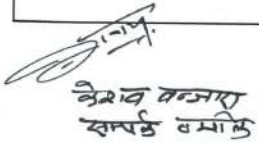 केशव बन्जारा
सम्पर्क व्यक्ति